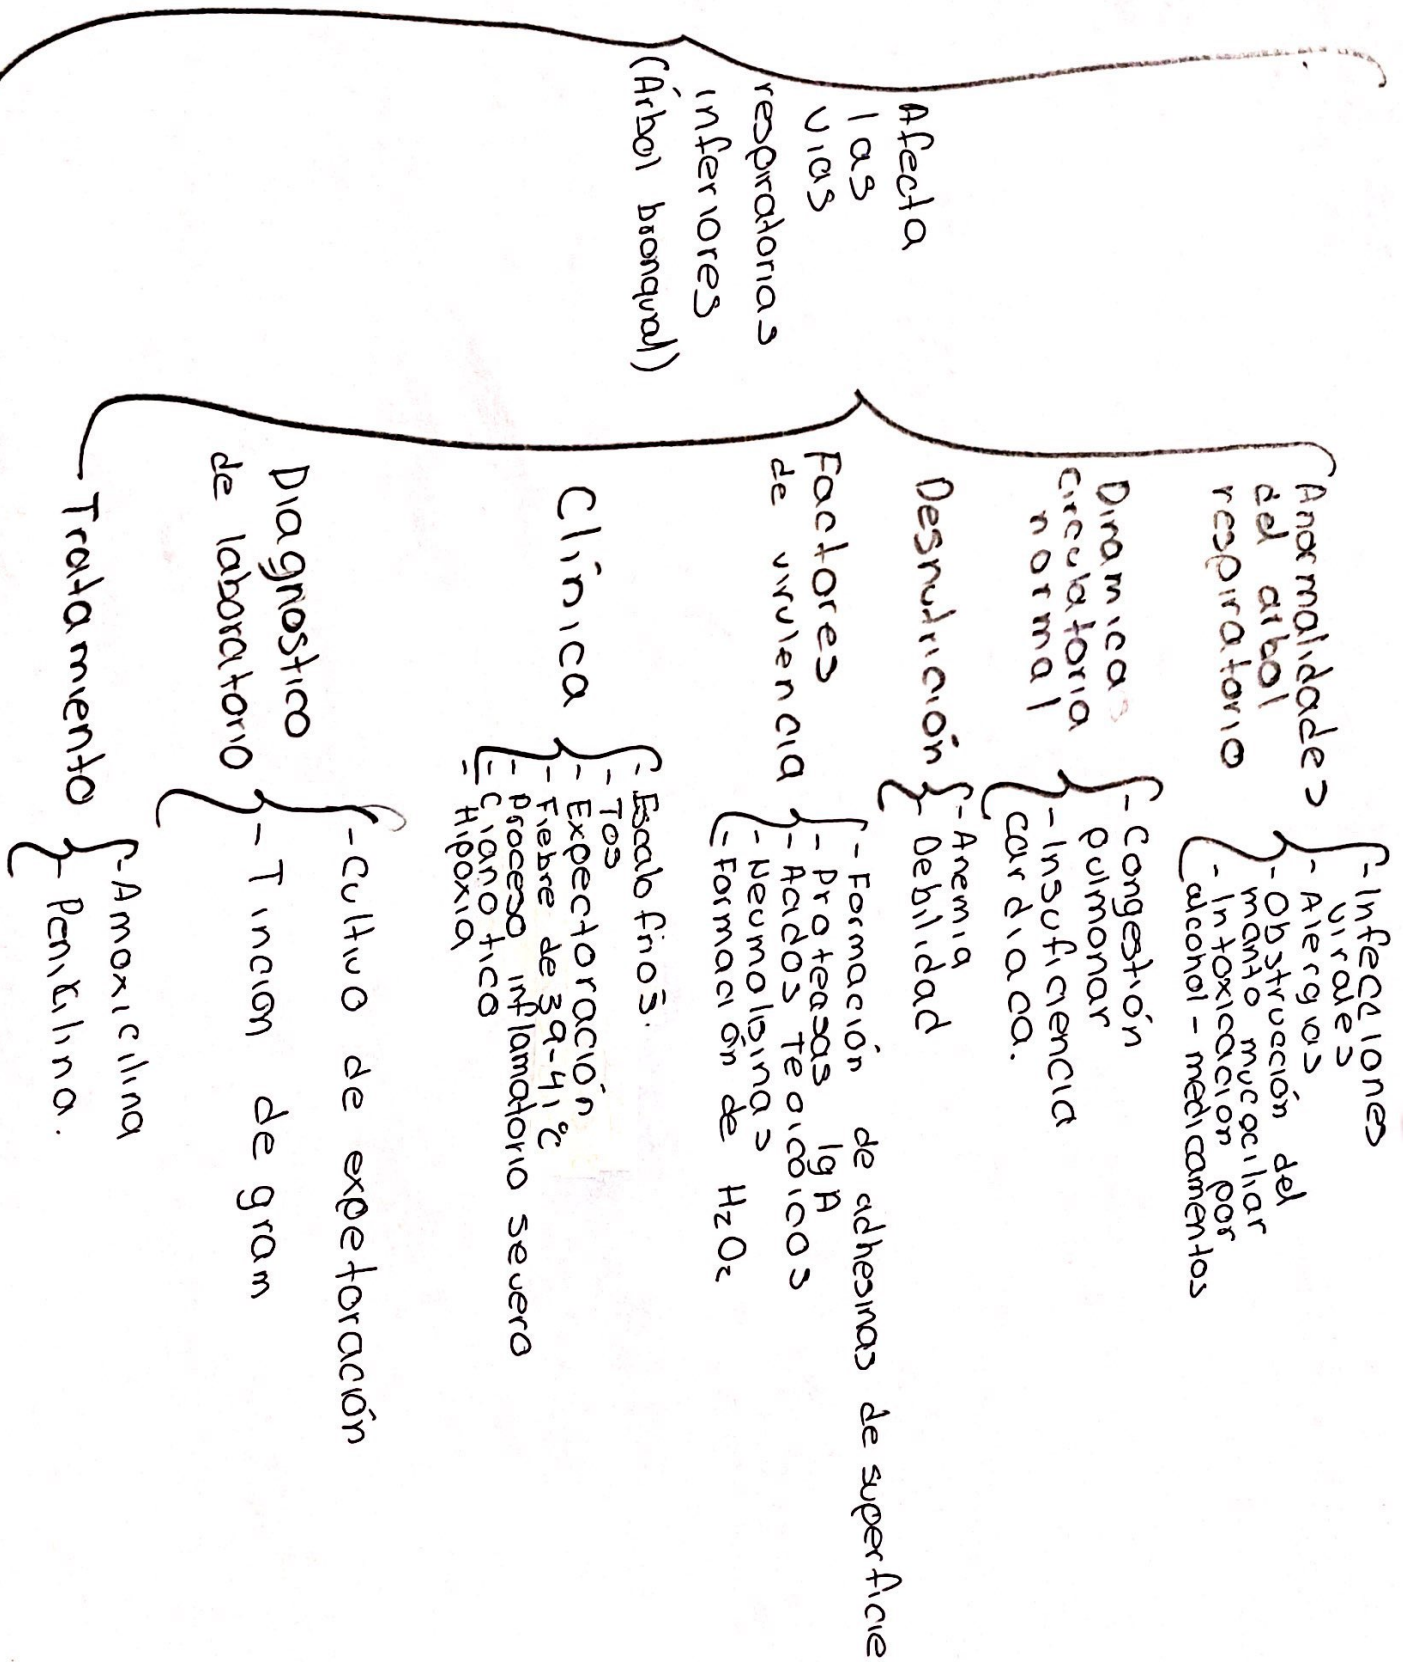 Afecta
las
vias
respiratorias
inferiores
(Árbol bronquial)
Anormalidades
del arbol
respiratorio
- Infecciones
virales
- Alergias
- Obstrucción del
manto mucociliar
- Intoxicación por
alcohol - medicamentos
Dinamica
circulatoria
normal
- Congestión
pulmonar
- Insuficiencia
cardiaca.
Desnutrición
- Anemia
- Debilidad
Factores
de virulencia
- Formación de adhesinas de superficie
- Proteasas IgA
- Acidos Teoicóicos
- Neumolisinas
- Formación de H₂O₂
Clínica
- Escalofrios.
- Tos
- Expectoración
- Fiebre de 39-41 °C
- Proceso inflamatorio severo
- Cianotico
- Hipoxia
Diagnostico
de laboratorio
- Cultivo de expetoración
- Tincion de gram
Tratamiento
- Amoxicilina
- Penicilina.